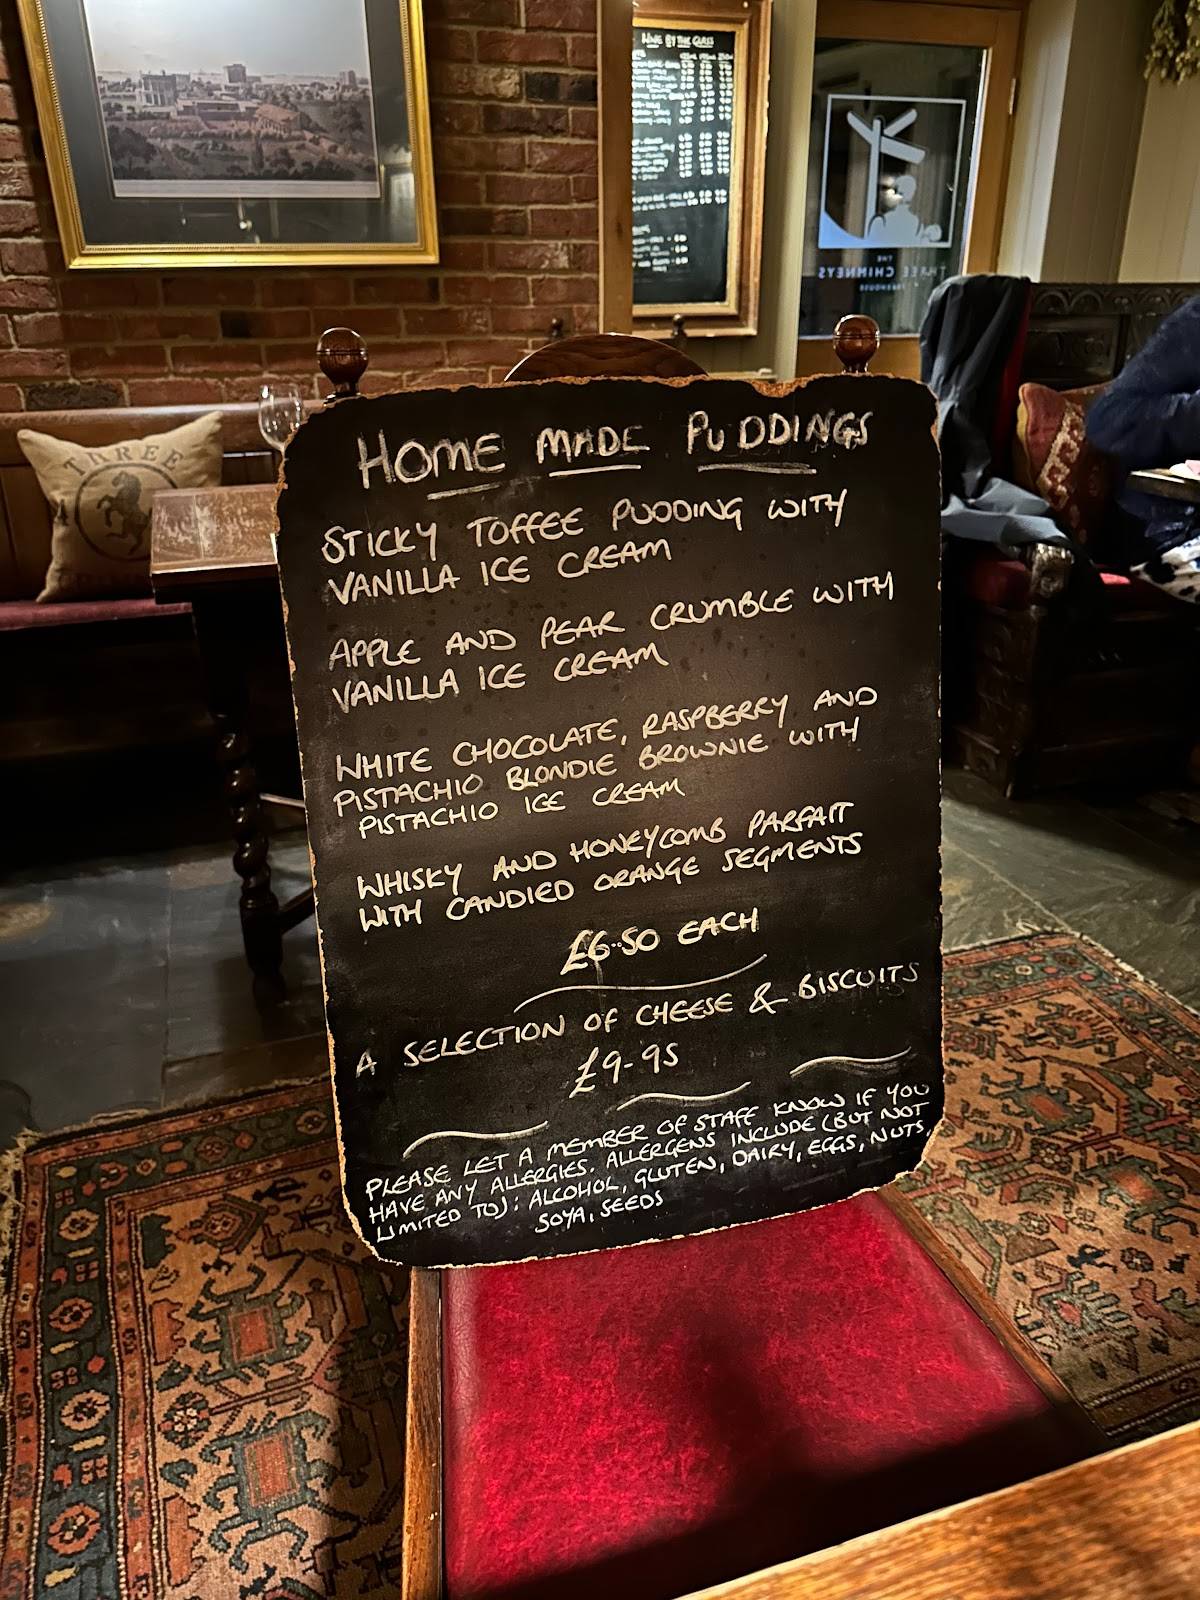 WINE BY THE GLASS
THE
THREE CHIMNEYS
THREE
HOME MADE PUDDINGS
STICKY TOFFEE PUDDING WITH
VANILLA ICE CREAM
APPLE AND PEAR CRUMBLE WITH
VANILLA ICE CREAM
WHITE CHOCOLATE, RASPBERRY AND
PISTACHIO BLONDIE BROWNIE WITH
PISTACHIO ICE CREAM
WHISKY AND HONEYCOMB PARFAIT
WITH CANDIED ORANGE SEGMENTS
£6.50 EACH
A SELECTION OF CHEESE & BISCUITS
£9-95
PLEASE LET A MEMBER OF STAFF KNOW IF YOU
HAVE ANY ALLERGIES. ALLERGENS INCLUDE (BUT NOT
LIMITED TO): ALCOHOL, GLUTEN, DAIRY, EGGS, NUTS,
SOYA, SEEDS